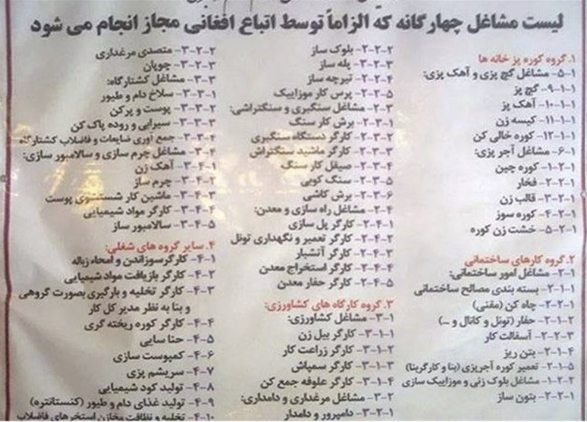 لیست مشاغل چهارگانه که الزاماً توسط اتباع افغانی مجاز انجام می شود
۱. گروه کوره پز خانه ها
۵-۱- مشاغل گچ پزی و آهک پزی:
۹-۱-۱- گچ پز
۱۰-۱-۱- آهک پز
۱۱-۱-۱- کیسه زن
۱۲-۱-۱- کوره خالی کن
۶-۱- مشاغل آجر پزی:
۱-۲-۱- کوره چین
۲-۲-۱- فخار
۳-۲-۱- قالب زن
۴-۲-۱- کوره سوز
۵-۲-۱- خشت زن کوره
۲. گروه کارهای ساختمانی
۱-۲- مشاغل امور ساختمانی:
۱-۱-۲- بسته بندی مصالح ساختمانی
۲-۱-۲- چاه کن (مقنی)
۲-۱-۲- حفار (تونل و کانال و ...)
۳-۱-۲- آسفالت کار
۴-۱-۲- بتن ریز
۵-۱-۲- تعمیر کوره آجرپزی (بنا و کارگربنا)
۲-۲- مشاغل بلوک زنی و موزاییک سازی
۱-۲-۲- بتون ساز
۲-۲-۲- بلوک ساز
۳-۲-۲- پله ساز
۴-۲-۲- تیرچه ساز
۵-۲-۲- پرس کار موزاییک
۳-۲- مشاغل سنگبری و سنگتراشی:
۱-۳-۲- برش کار سنگ
۲-۳-۲- کارگر دستگاه سنگبری
۳-۳-۲- کارگر ماشید سنگتراش
۴-۳-۲- صیقل کار سنگ
۵-۳-۲- سنگ کوبی
۶-۳-۲- برش کاشی
۴-۲- مشاغل راه سازی و معدن:
۱-۴-۲- کارگر پل سازی
۲-۴-۲- کارگر تعمیر و نگهداری تونل
۳-۴-۲- کارگر آتشبار
۴-۴-۲- کارگر استخراج معدن
۵-۴-۲- کارگر حفار معدن
۳. گروه کارگاه های کشاورزی:
۱-۳- مشاغل کشاورزی:
۱-۱-۳- کارگر بیل زن
۲-۱-۳- کارگر زراعت کار
۳-۱-۳- کارگر سمپاش
۴-۱-۳- کارگر علوفه جمع کن
۲-۳- مشاغل مرغداری و دامداری:
۱-۲-۳- دامپرور و دامدار
۲-۲-۳- متصدی مرغداری
۳-۲-۳- چوپان
۳-۳- مشاغل کشتارگاه:
۱-۳-۳- سلاخ دام و طیور
۲-۳-۳- پوست و پرکن
۳-۳-۳- سیرابی و روده پاک کن
۴-۳-۳- جمع آوری ضایعات و فاضلاب کشتارگاه
۴-۳- مشاغل چرم سازی و سالامبور سازی:
۱-۴-۳- آهک زن
۲-۴-۳- چرم ساز
۳-۴-۳- ماشین کار شستشوی پوست
۴-۴-۳- کارگر مواد شیمیایی
۵-۴-۳- سالامبور ساز
۴. سایر گروه های شغلی:
۱-۴- کارگرسوزاندن و امحاء زباله
۲-۴- کارگر بازیافت مواد شیمیایی
۳-۴- کارگر تخلیه و بارگیری بصورت گروهی
و بنا به نظر مدیر کل کار
۴-۴- کارگر کوره ریخته گری
۵-۴- حنا سایی
۶-۴- کمپوست سازی
۷-۴- سریشم پزی
۸-۴- تولید کود شیمیایی
۹-۴- تولید غذای دام و طیور (کنستانتره)
۱۰-۴- تخلیه و نظافت مخازن استخرهای فاضلاب